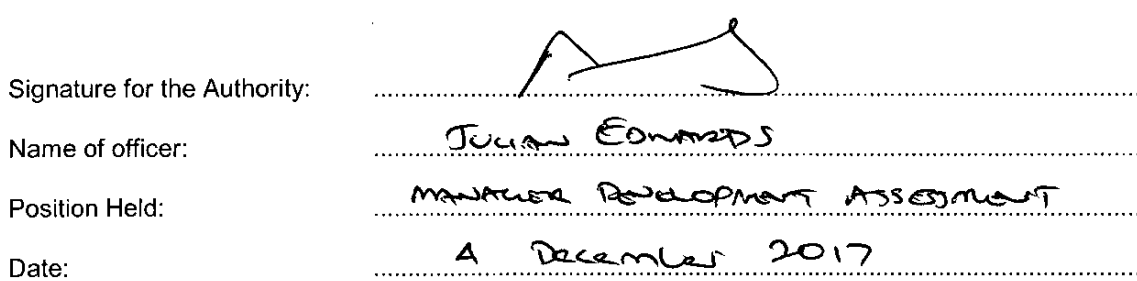 Signature for the Authority:
Name of officer: JULIAN EDWARDS
Position Held: MANAGER DEVELOPMENT ASSESSMENT
Date: 4 December 2017